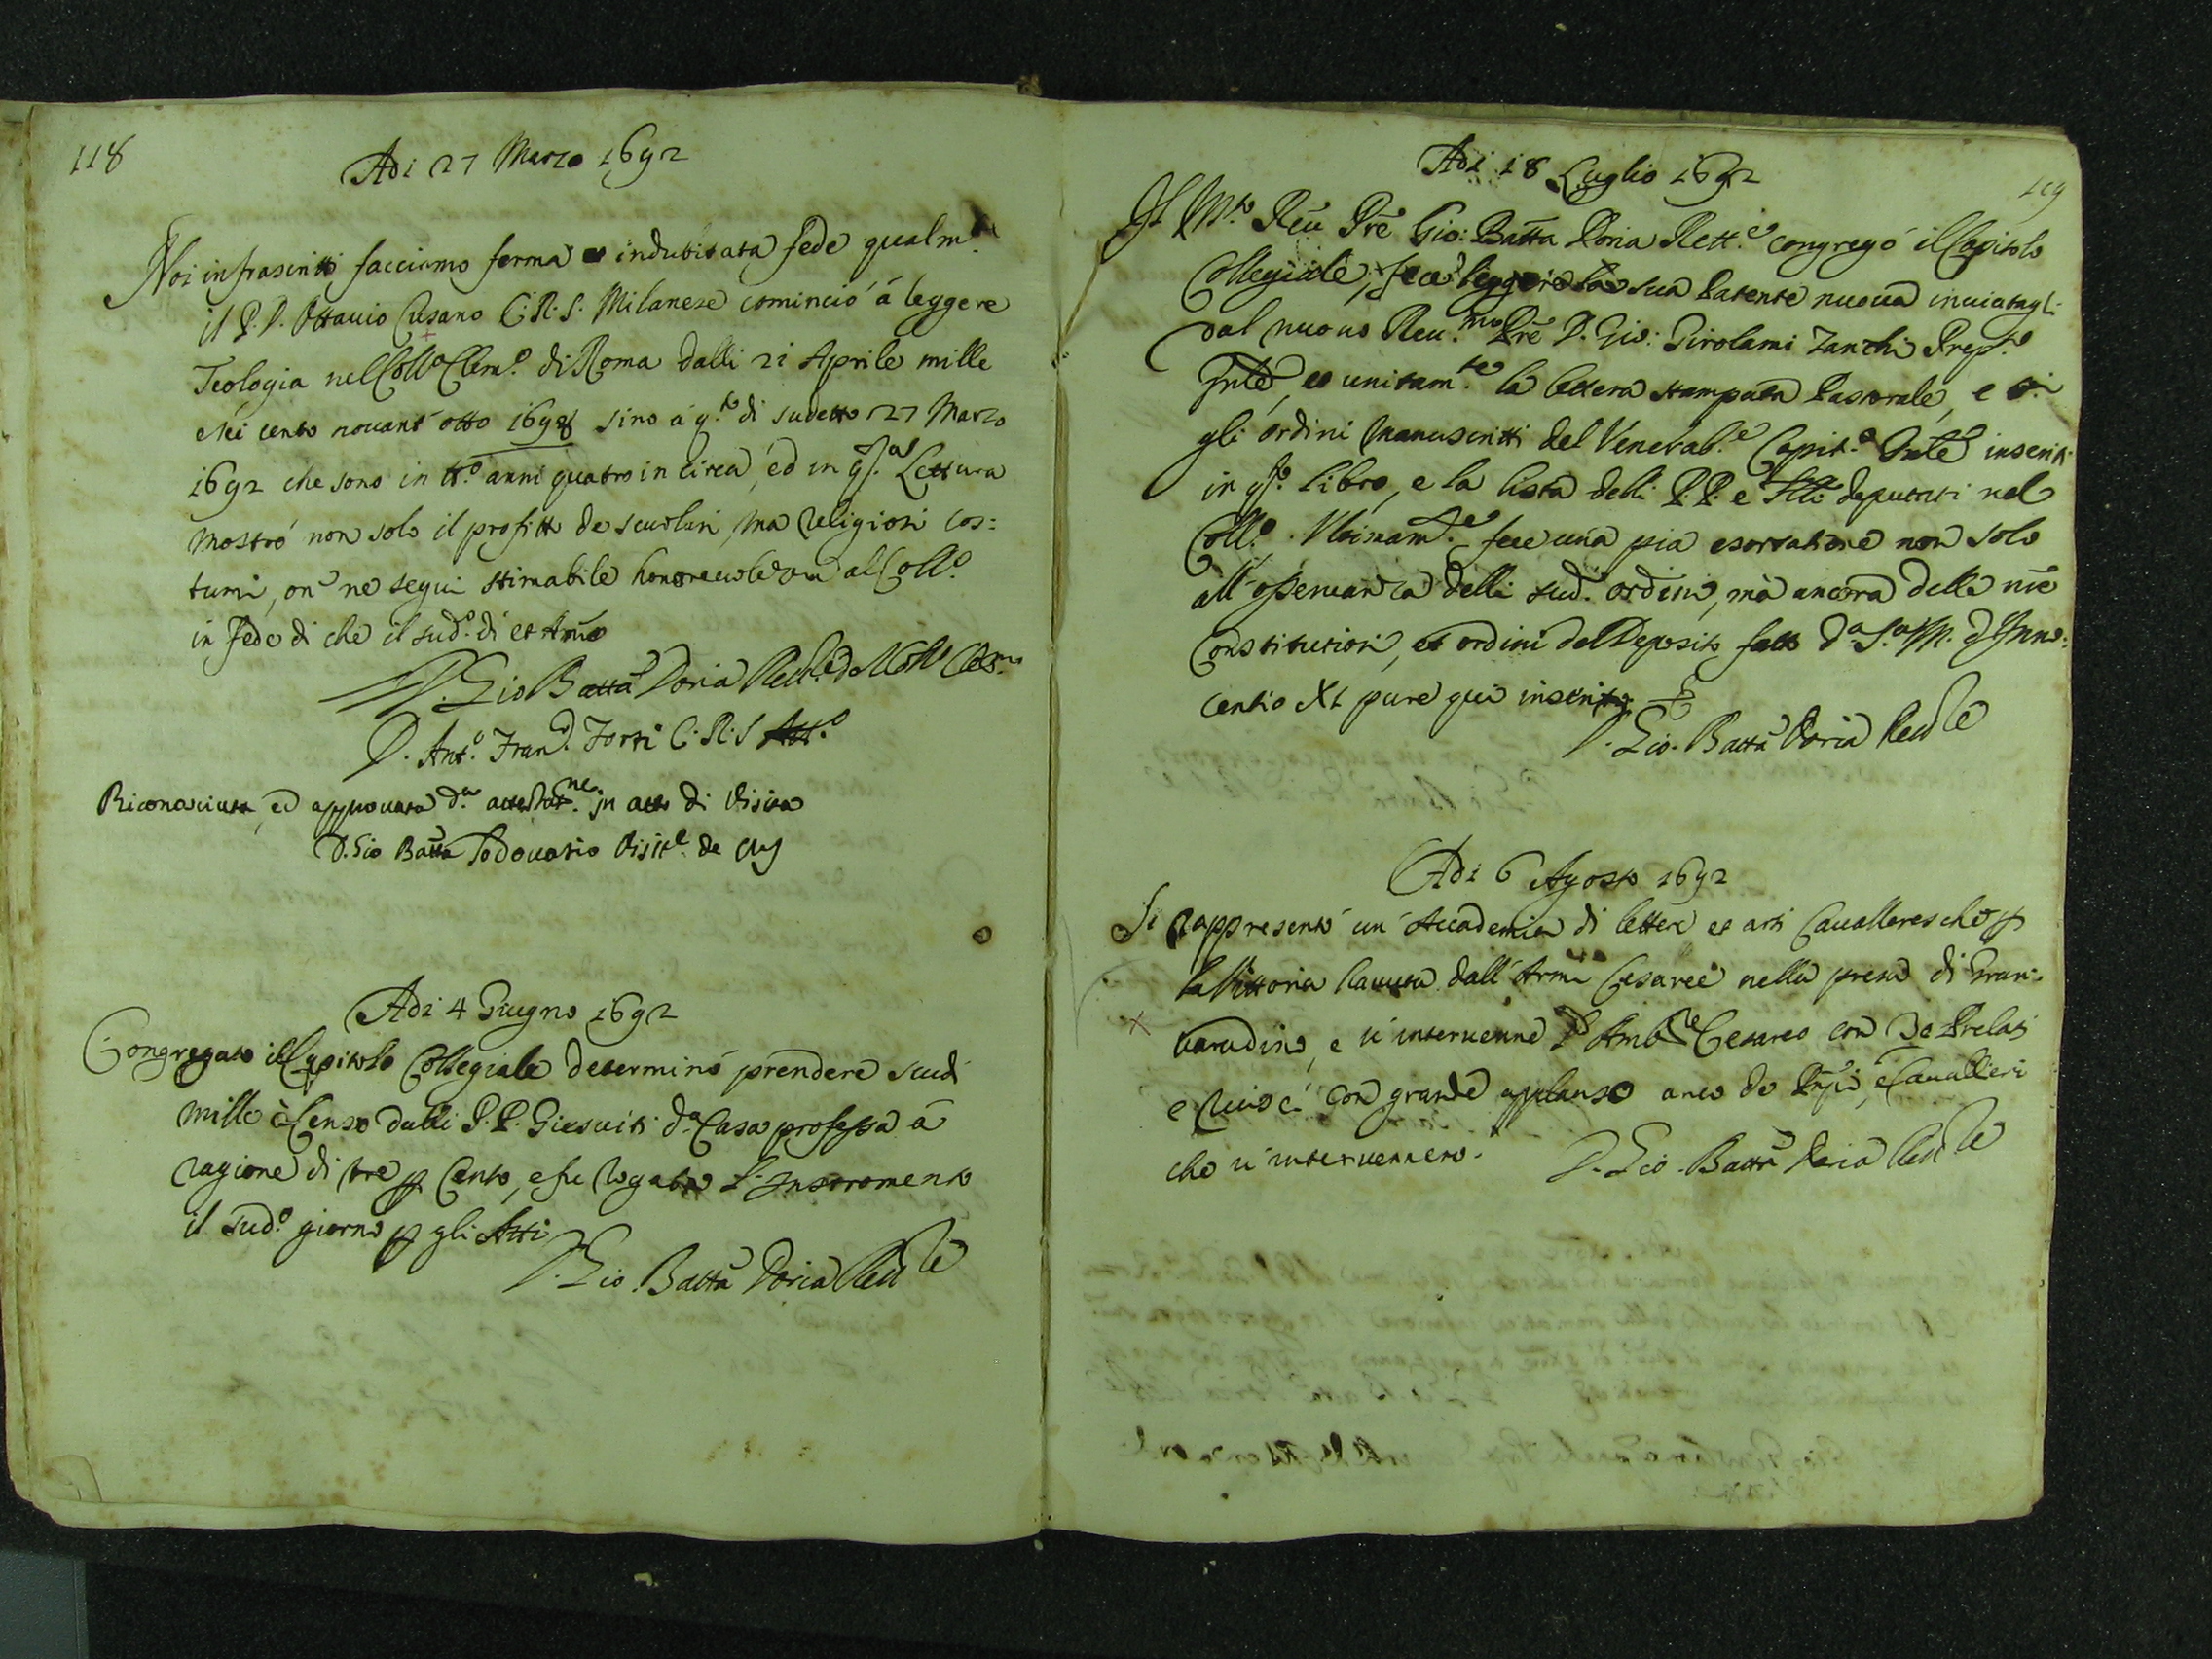 118
Adi 27 Marzo 1692
Noi infrascritti facciamo ferma et indubitata fede qualm.e
il P. D. Ottavio Cusano C. R. S. Milanese cominciò á leggere
Teologia nel Coll.o Clem.o di Roma dalli 21 Aprile mille
e sei cento novant' otto 1698 sino á q.to di sudetto 27 Marzo
1692 che sono in tt.o anni quatro in circa, ed in q.sta Lettura
mostró non solo il profitto de scuolari, ma religiosi cos:
tumi, on' ne seguì stimabile honorevolezza al Coll.o
in fede di che il sud.o di et Anno
D. Gio Batta Doria Rett.e del Coll.o Clem.no
D. Ant.o Fran.co Forti C. R. S. Att.o
Riconosciuta, ed approvata d.a attestat.ne in atto di Visita
D. Gio Batta Lodovasio Visit.e
Adi 4 Giugno 1692
Congregato il Capitolo Collegiale determinò prendere scudi
mille à Censo dalli P. P. Giesuiti d.a Casa professa á
ragione di tre p Cento, e fu rogato l'Instromento
il sud.o giorno p gli Atti
D. Gio. Batta Doria Rett.re
119
Adi 18 Luglio 1692
Il M.to Reu Pre Gio: Batta Doria Rett.e congregó il Capitolo
Collegiale, fece leggere la sua Patente nuova inviatagli
dal nuovo Reu.mo Pre D. Gio: Girolami Zanchi Prep.to
Gnle, et unitam.te la lettera stampata Pastorale, e
gli ordini manuscritti del Venerab.e Capit.o Gnle inseriti
in q.sto libro, e la lista delli P. P. e flli deputati nel
Coll.o. Ultimam.te fece una pia esortatione non solo
all'osservanza delli sud.i ordini, mà ancora delle nre
Constitutioni, et ordini del Deposito fatto d.a S.a M. d'Inno:
centio XI pure qui inserito
D. Gio. Batta Doria Rett.re
Adi 6 Agosto 1692
Si rappresentó un' Accademia di lettere et arti Cavalleresche p
la Vittoria havuta dall'Armi Cesaree nella presa di Gran:
varadino, e vi intervenne l'Amb.re Cesareo con 30 Prelati
e riuscì con grande applauso anco de Prñpi, e Cavallieri
che vi intervennero.
D. Gio. Batta Doria Rett.re